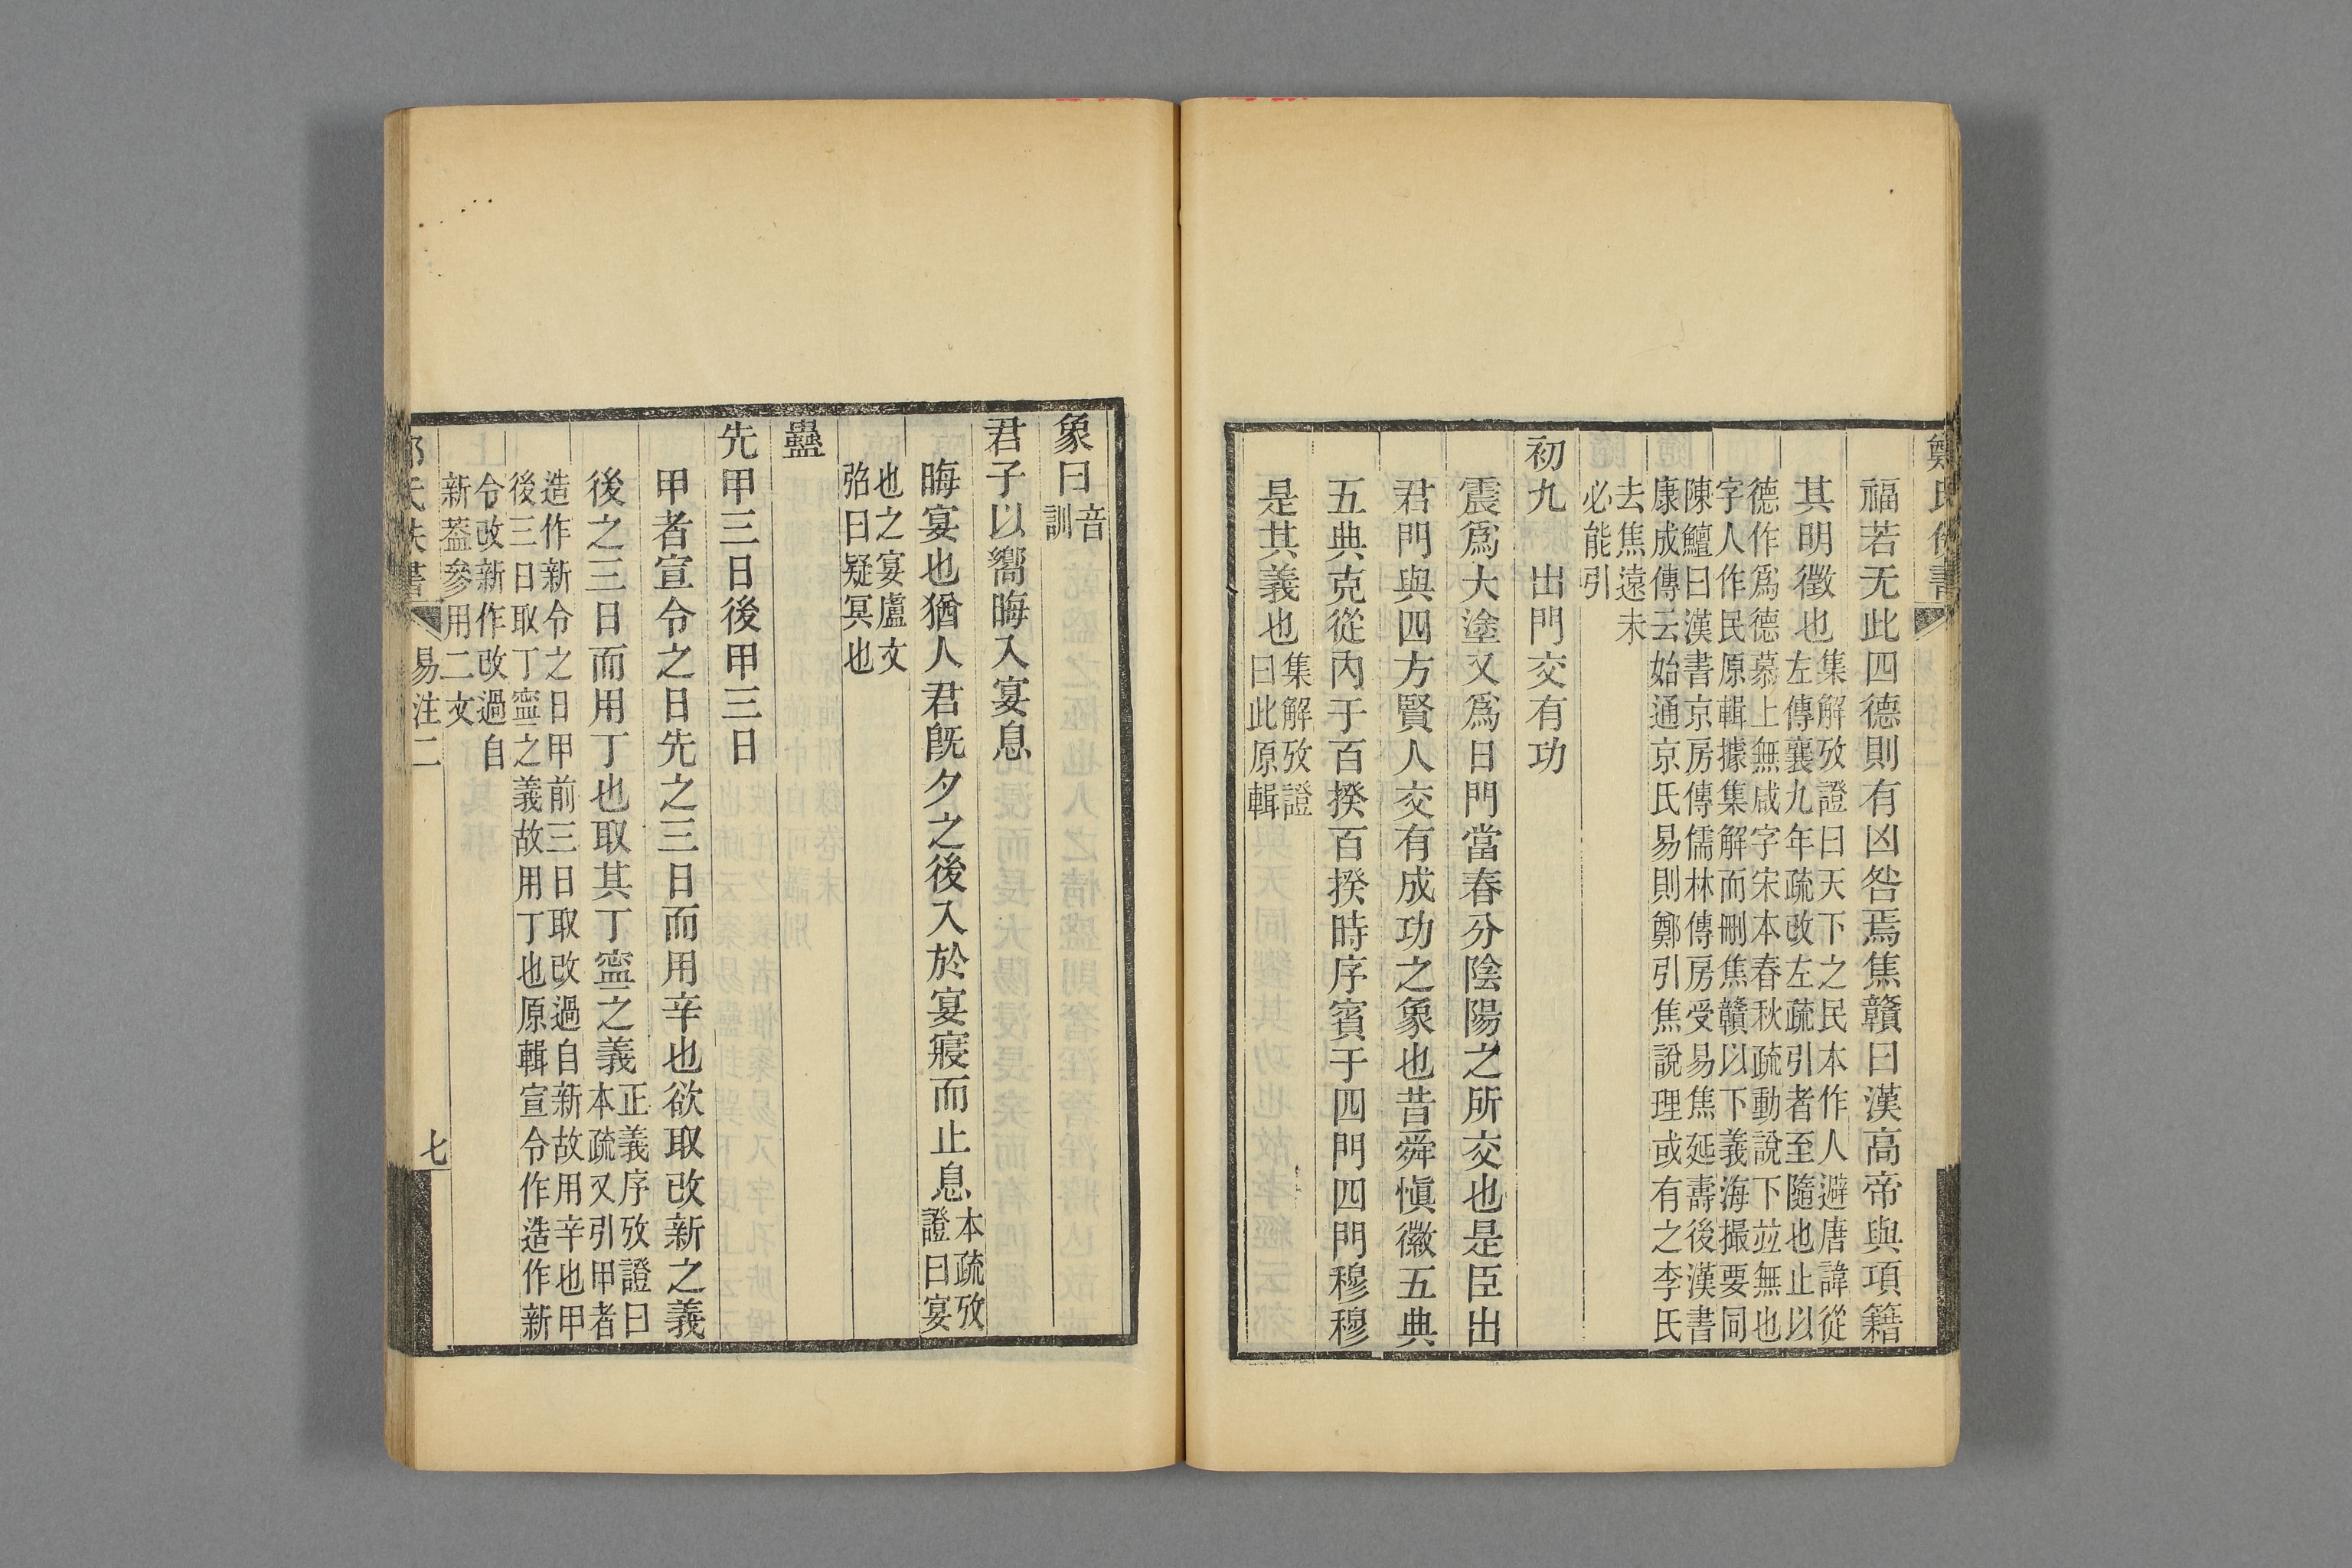 鄭氏佚書
福若无此四德則有凶咎焉焦贛曰漢高帝與項籍
其明徵也
集解攷證曰天下之民本作人避唐諱從
左傳襄九年疏改左疏引者至隨也止以
德作爲德德慕上無咸字宋本春秋疏動說下並無也
字人作民原輯據集解而刪焦贛以下義海撮要同
陳鱣曰漢書京房傳儒林傳房受易焦延壽後漢書
康成傳云始通京氏易則鄭引焦說理或有之李氏
去焦遠未
必能引
初九出門交有功
震爲大塗又爲日門當春分陰陽之所交也是臣出
君門與四方賢人交有成功之象也昔舜愼徽五典
五典克從內于百揆百揆時序賓于四門四門穆穆
是其義也
集解攷證
曰此原輯
象曰
音
訓
君子以嚮晦入宴息
晦宴也猶人君旣夕之後入於宴寢而止息
本疏攷
證曰宴
也之宴盧文
弨曰疑冥也
蠱
先甲三日後甲三日
甲者宣令之日先之三日而用辛也欲取改新之義
後之三日而用丁也取其丁寧之義
正義序攷證曰
本疏又引甲者
造作新令之日甲前三日取改過自新故用辛也甲
後三日取丁寧之義故用丁也原輯宣令作造作新
令改新作改過自
新葢參用二文
易注二
七